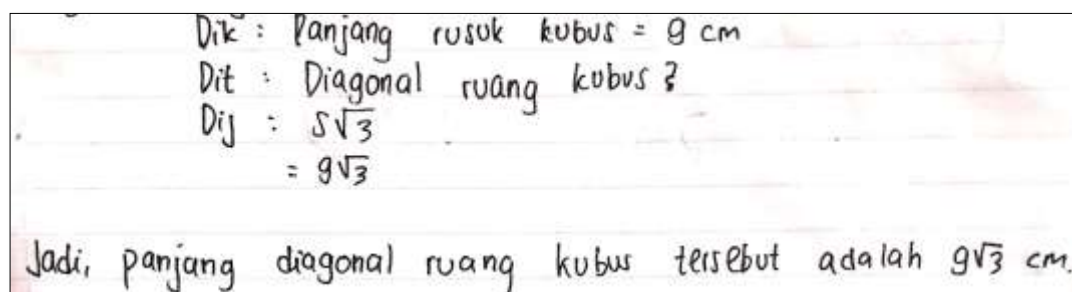 Dik : Panjang rusuk kubus = 9 cm
Dit : Diagonal ruang kubus ?
Dij : S√3
= 9√3
Jadi, panjang diagonal ruang kubus tersebut adalah 9√3 cm.